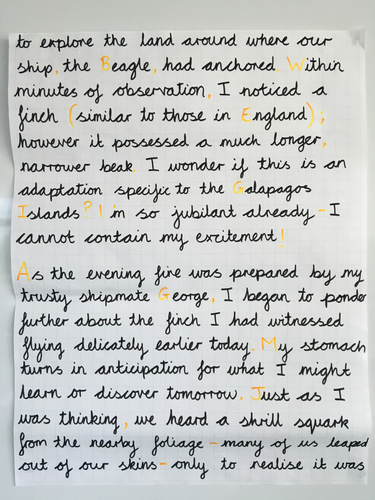 to explore the land around where our
ship, the Beagle, had anchored. Within
minutes of observation, I noticed a
finch (similar to those in England);
however it possessed a much longer,
narrower beak. I wonder if this is an
adaptation specific to the Galapagos
Islands? I'm so jubilant already - I
cannot contain my excitement!
As the evening fire was prepared by my
trusty shipmate George, I began to ponder
further about the finch I had witnessed
flying delicately earlier today. My stomach
turns in anticipation for what I might
learn or discover tomorrow. Just as I
was thinking, we heard a shrill squark
from the nearby foliage - many of us leaped
out of our skins - only to realise it was